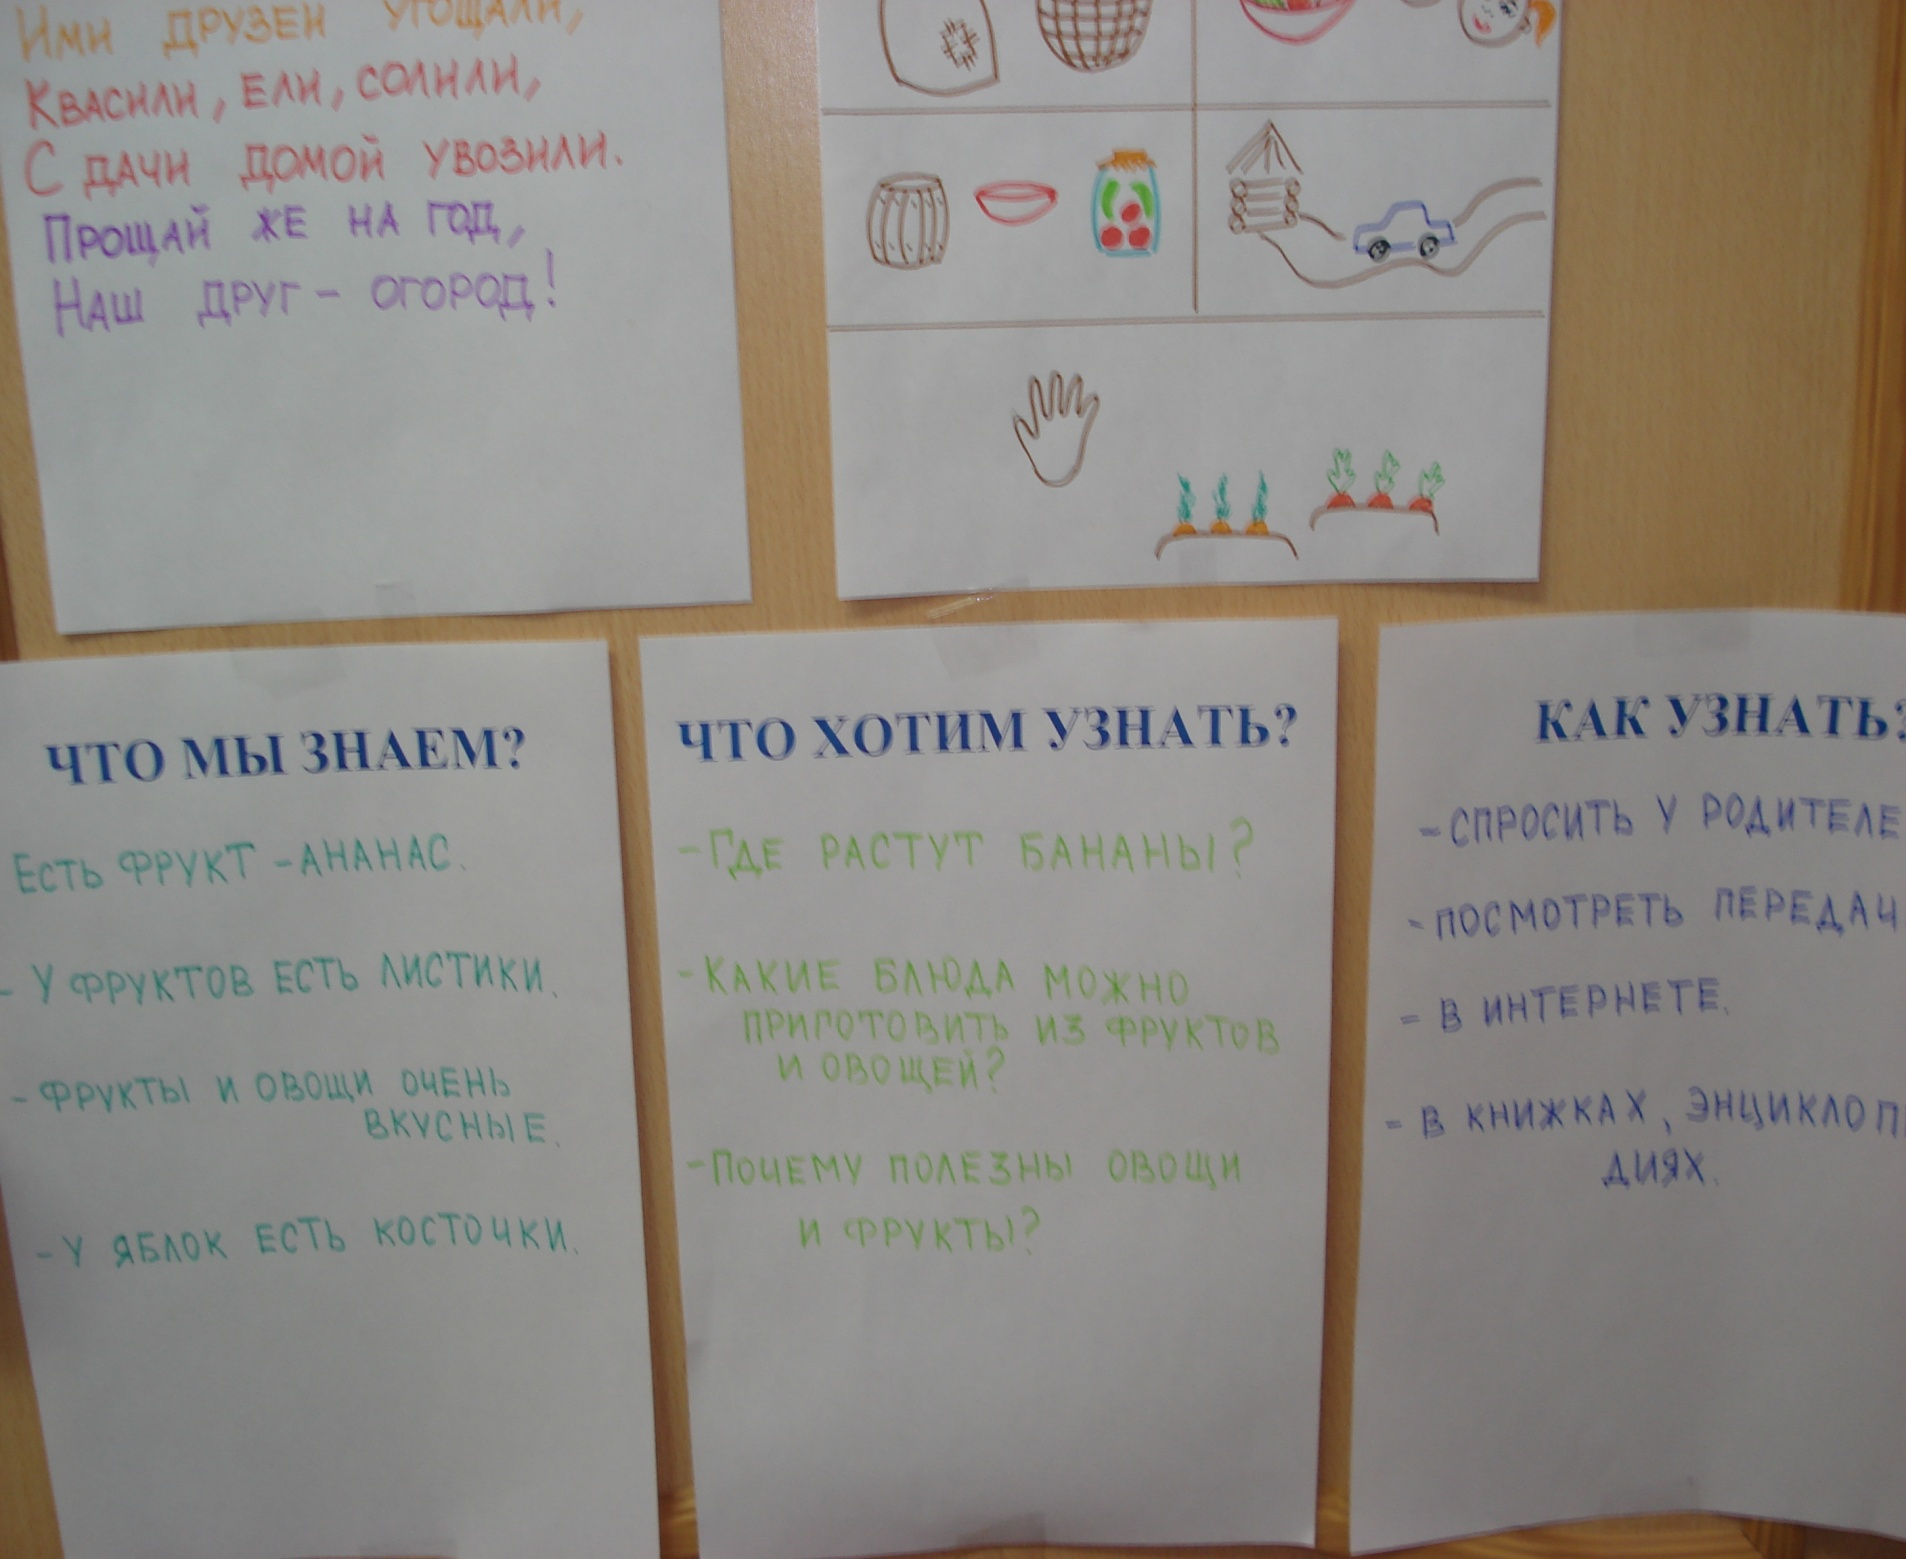 Ими друзей угощали,
Квасили, ели, солили,
С дачи домой увозили.
Прощай же на год,
Наш друг - огород!
ЧТО МЫ ЗНАЕМ?
Есть фрукт - ананас.
- У фруктов есть листики.
- Фрукты и овощи очень
вкусные.
- У яблок есть косточки.
ЧТО ХОТИМ УЗНАТЬ?
- Где растут бананы?
- Какие блюда можно
приготовить из фруктов
и овощей?
- Почему полезны овощи
и фрукты?
КАК УЗНАТЬ?
- спросить у родителе
- посмотреть передач
- в интернете.
- в книжках, энциклоп
диях.